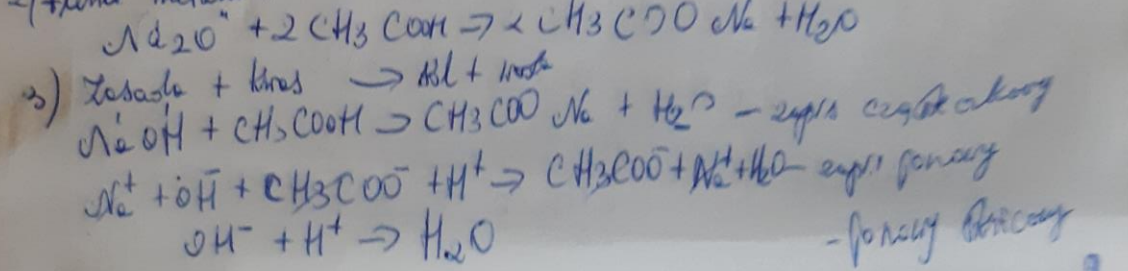 Na₂O + 2 CH₃COOH → 2 CH₃COO Na + H₂O
3) Zasada + kwas → sól + woda
NaOH + CH₃COOH → CH₃COO Na + H₂O - zapis cząsteczkowy
Na⁺ + OH⁻ + CH₃COO⁻ + H⁺ → CH₃COO⁻ + Na⁺ + H₂O - zapis jonowy
OH⁻ + H⁺ → H₂O - jonowy skrócony